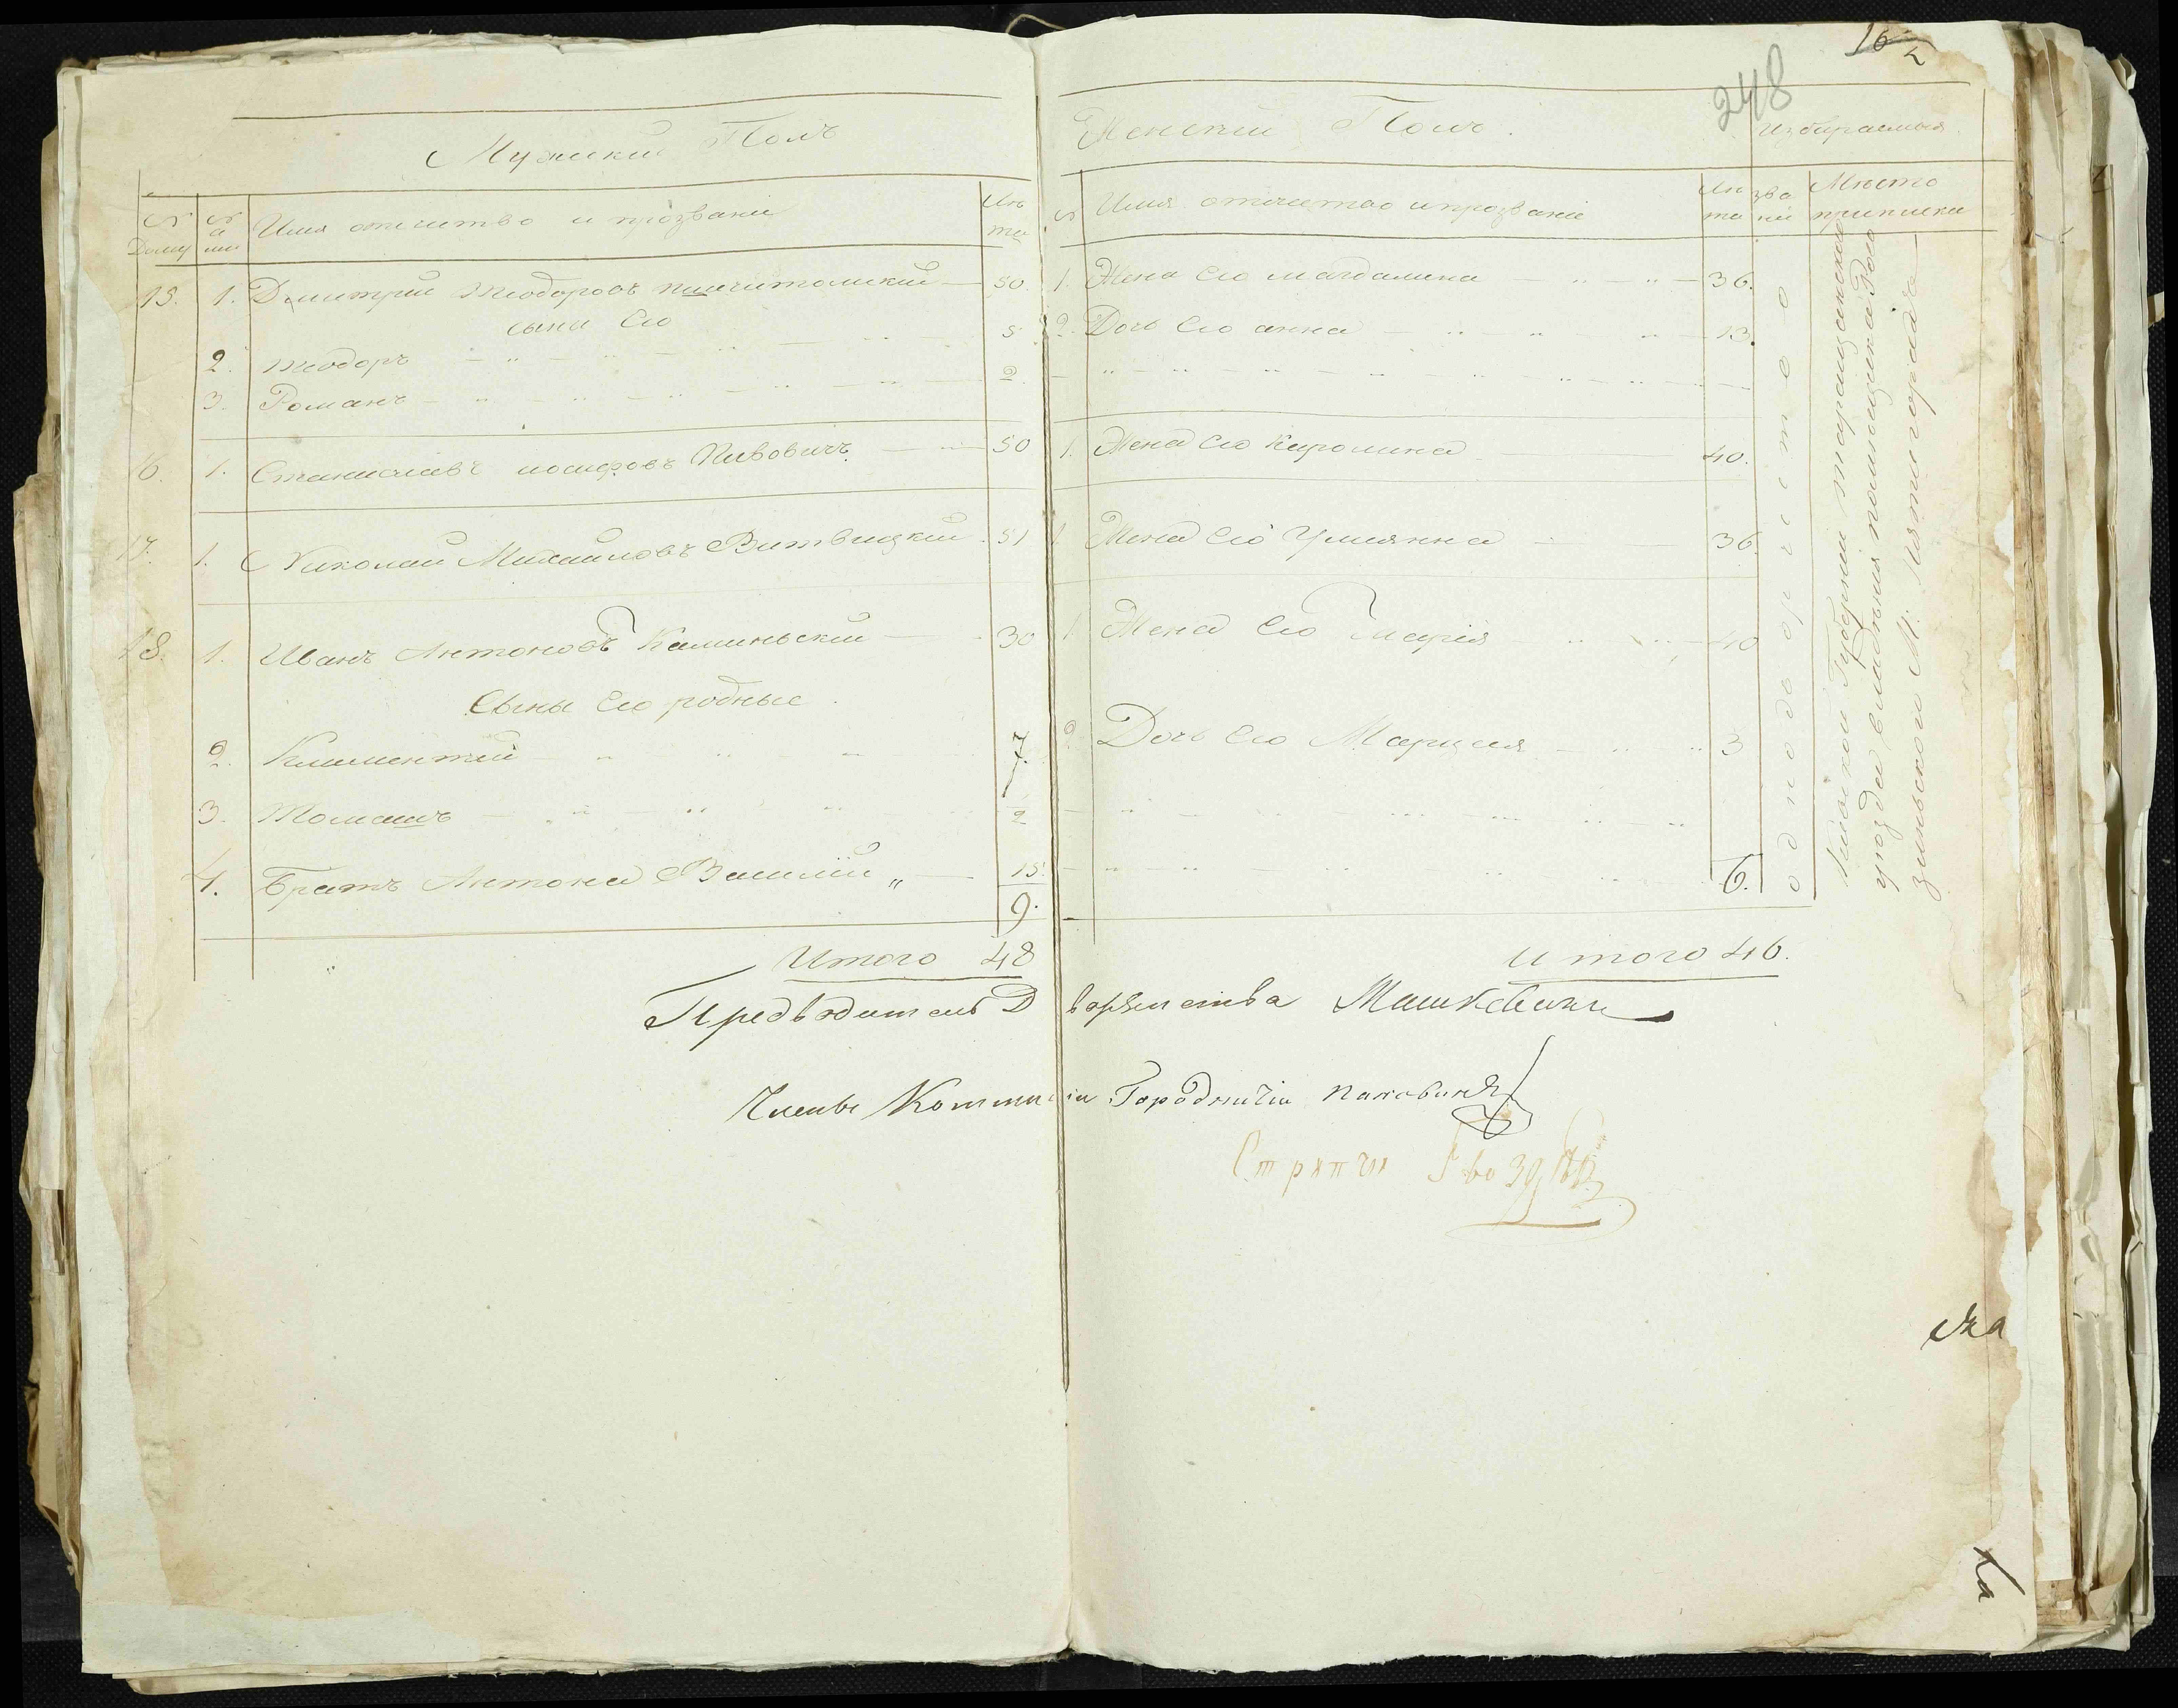 248
16
Мужский Полъ
№ Дому
№ ду ши
Имя отчество и прозваніе
Лѣ та
15. 1. Дмитрій Теодоровъ — 50.
сыны Его
2. Теодоръ — 5
3. Романъ — 2.
16. 1. Станиславъ иосифовъ Пивовичъ — 50
17. 1. Николай Михайловъ Витвицкий 51
18. 1. Иванъ Антоновъ Каминьский — 30
Сыны Его родные
2. Климентий — 7.
3. Томашъ — 2
4. Братъ Антона Василий „ — 15.
9.
Итого 48
Женский Полъ.
Избираемыя
№
Имя отчество и прозваніе
Лѣ та
зва ніе
Мѣсто приписки
1. Жена Его магдалина — 36.
2. Дочь Его анна — 13.
1. Жена Его Каролина — 40.
1 Жена Его Улиянна — 36.
1 Жена Его Марія — 40
2. Дочь Его Марцеля — 3
6.
однодворчество
Киевской Губерніи таращанскаго
уѣзда владѣнія помѣщика
М:
Итого 46.
Предводитель Дворянства Машкевичъ
Члены Коммисіи Городничій
Стряпчій